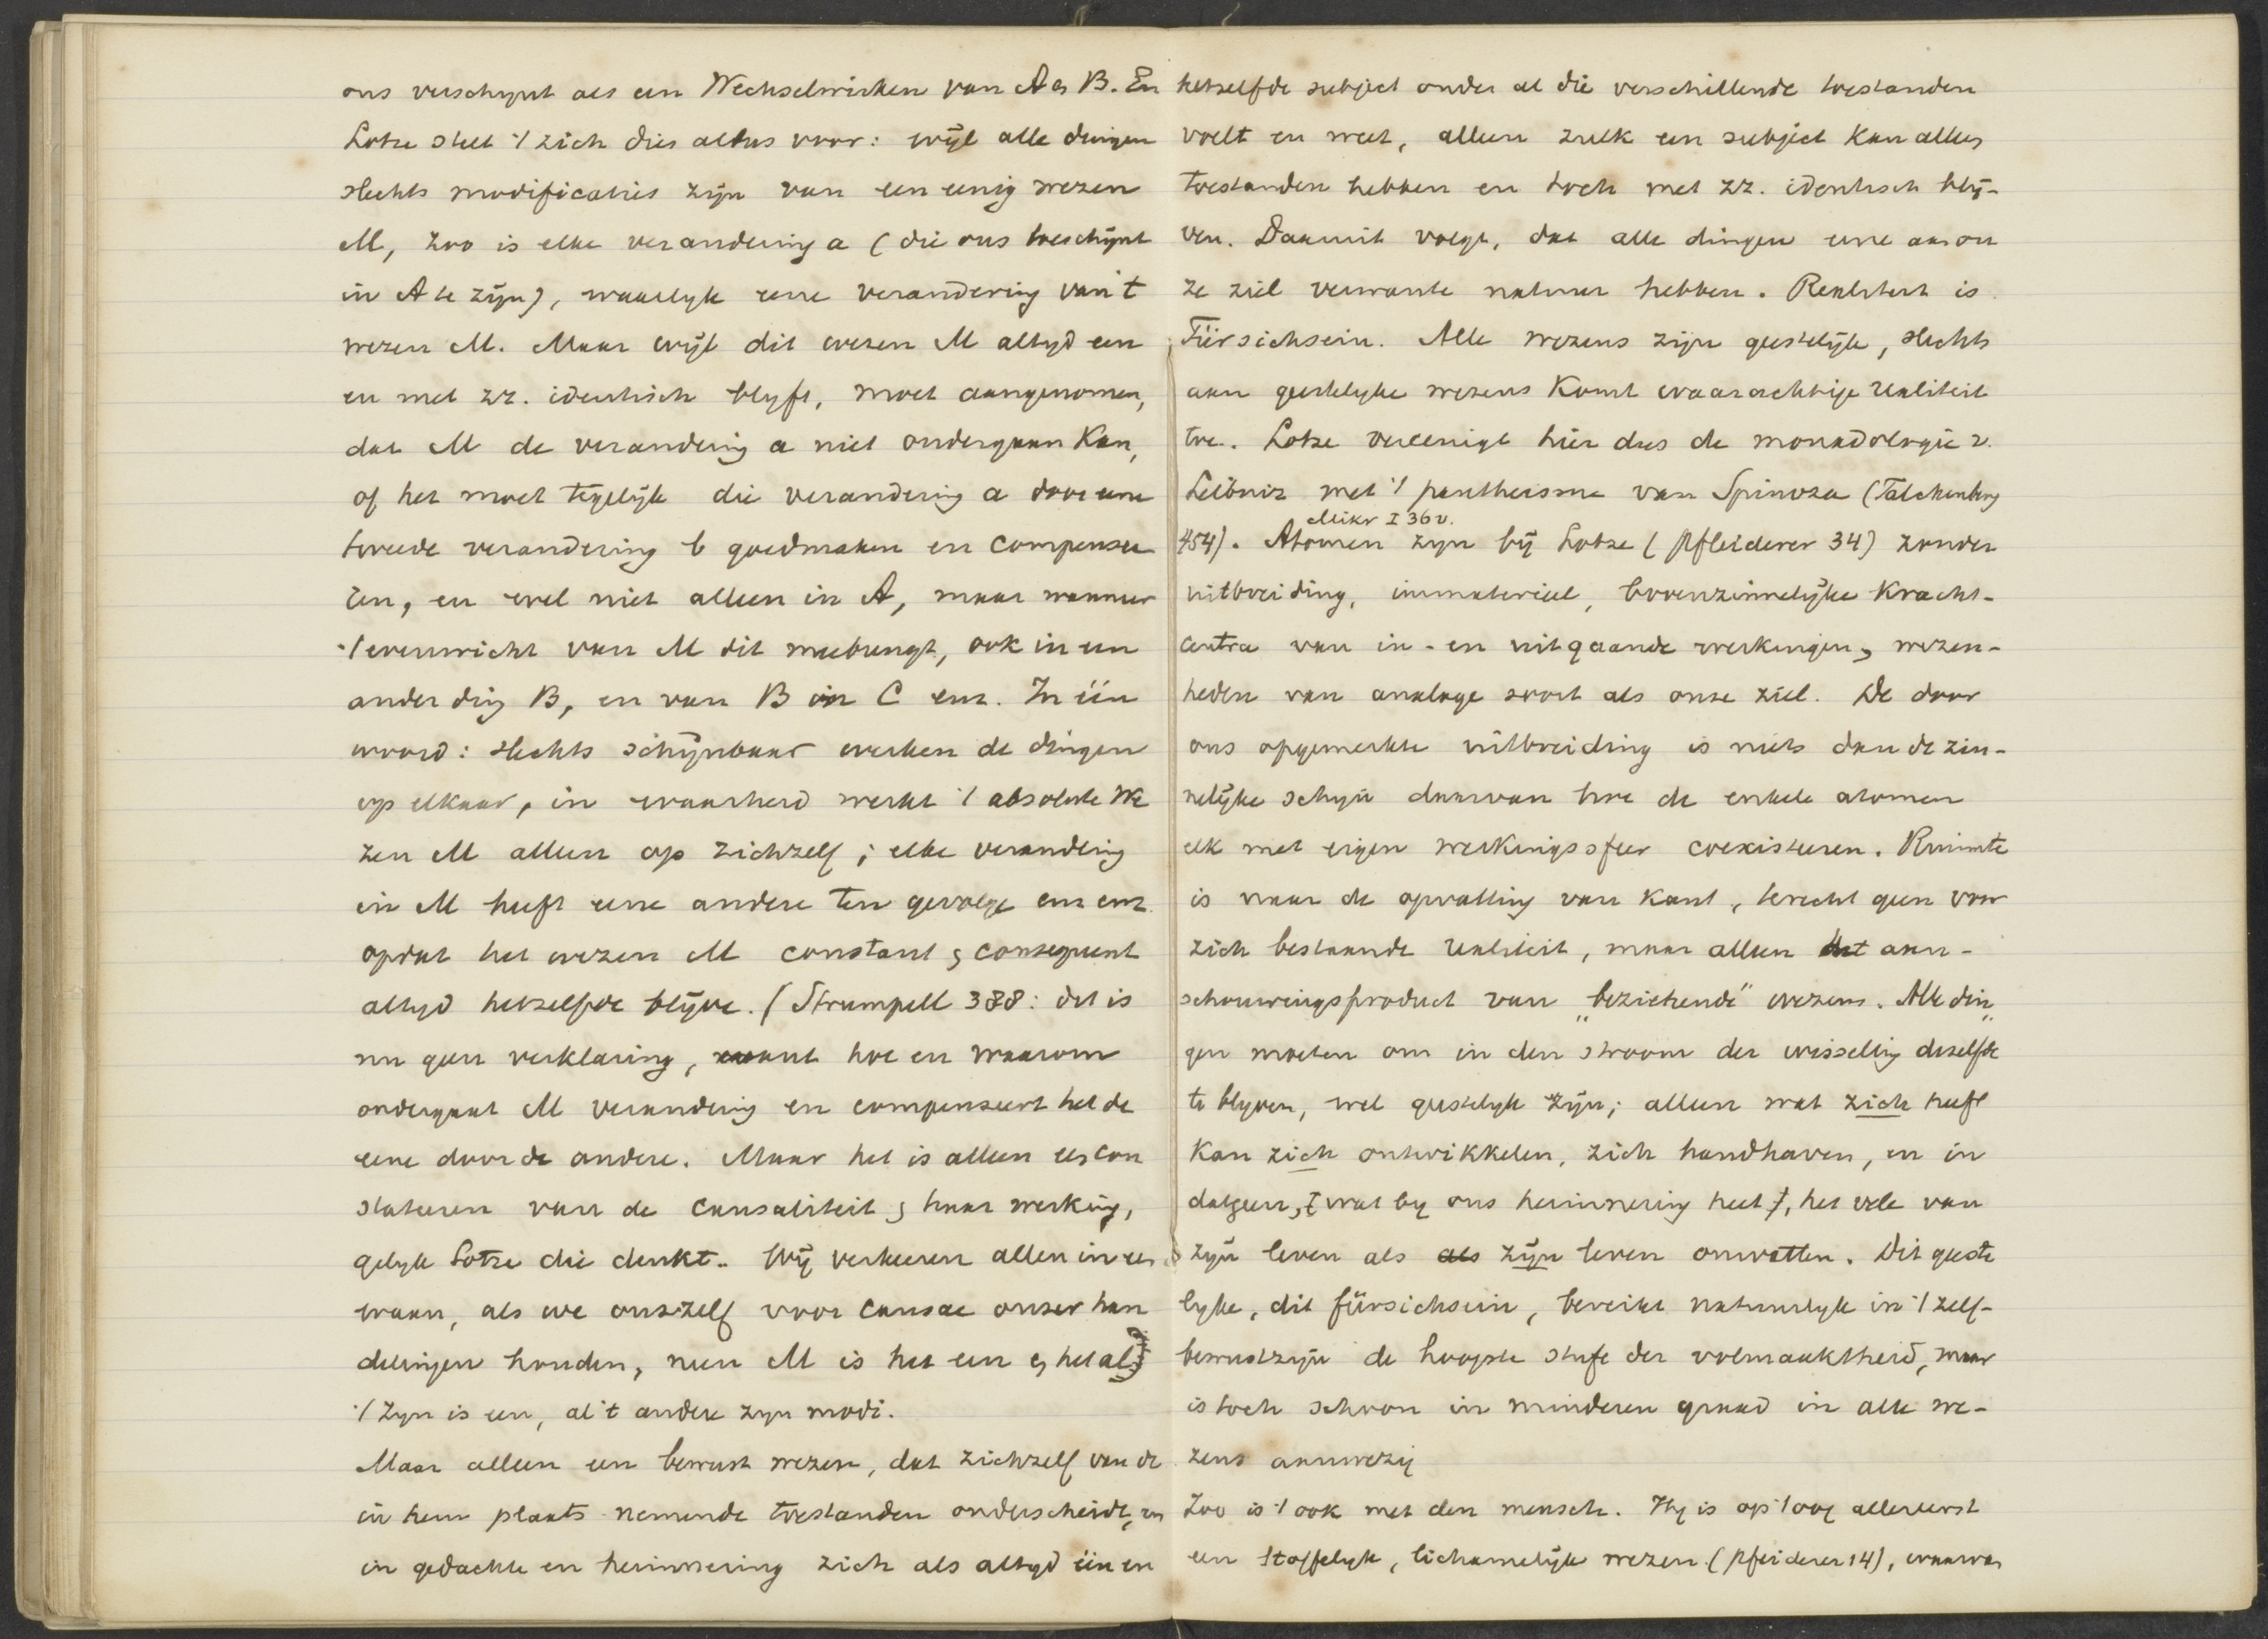 ons verschynt als een Wechselwirken van A en B. En
Lotze stelt 't zich dus aldus voor: wijl alle dingen
slechts modificaties zijn van een eenig wezen
M, zoo is elke verandering a (die ons toeschijnt
in A te zijn), waarlyk eene verandering van 't
wezen M. Maar wijl dit wezen M altyd een
en met zz. identisch blyft, moet aangenomen,
dat M de verandering a niet ondergaan kan,
of het moet tegelijk die verandering a door eene
tweede verandering b goedmaken en compensee
ren, en wel niet alleen in A, maar wanneer
't evenwicht van M dit meebrengt, ook in een
ander ding B, en van B in C enz. In één
woord: slechts schijnbaar werken de dingen
op elkaar, in waarheid werkt 't absolute We
zen M alleen op zichzelf; elke verandering
in M heeft eene andere ten gevolge enz enz.
opdat het wezen M constant & consequent
altyd hetzelfde blijve. (Strumpell 388: dit is
nu geen verklaring, want hoe en waarom
ondergaat M verandering en compenseert het de
eene door de andere. Maar het is alleen een con
stateeren van de causaliteit & haar werking,
gelyk Lotze die denkt. Wij verkeeren allen in een
waan, als we onszelf voor causae onzer han
delingen houden, neen M is het een & het al)
't Zyn is een, al 't andere zyn modi.
Maar alleen een bewust wezen, dat zichzelf van de
in hem plaats nemende toestanden onderscheidt, en
in gedachte en herinnering zich als altyd één en
hetzelfde subject onder al die verschillende toestanden
voelt en weet, alleen zulk een subject kan alles
toestanden hebben en toch met zz. identisch blij-
ven. Daaruit volgt, dat alle dingen eene aan on
ze ziel verwante natuur hebben. Realiteit is
Fürsichsein. Alle wezens zijn geestelijk, slechts
aan geestelyke wezens komt waarachtige realiteit
toe. Lotze vereenigt hier dus de monadologie v.
Leibniz met 't pantheisme van Spinoza (Falckenberg
Mikr I 36 v.
454). Atomen zyn bij Lotze (Pfleiderer 34) zonder
uitbreiding, immaterieel, bovenzinnelijke kracht-
centra van in- en uitgaande werkingen, wezen-
heden van analoge soort als onze ziel. De door
ons opgemerkte uitbreiding is niets dan de zin-
nelijke schyn daarvan hoe de enkele atomen
elk met eigen werkingssfeer coexisteeren. Ruimte
is naar de opvatting van Kant, terecht geen voor
zich bestaande realiteit, maar alleen het aan-
schouwingsproduct van „beziehende" wezens. Alle din„
gen moeten om in den stroom der wisseling dezelfde
te blyven, wel geestelyk zijn; alleen wat zich heeft
kan zich ontwikkelen, zich handhaven, en in
datgeen, [wat by ons herinnering heet], het vele van
zijn leven als als zijn leven omvatten. Dit geeste
lyke, dit fürsichsein, bereikt natuurlyk in 't zelf-
bewustzijn de hoogste stufe der volmaaktheid, maar
is toch schoon in minderen graad in alle we-
zens aanwezig
Zoo is 't ook met den mensch. Hy is op 't oog allereerst
een stoffelyk, lichamelijk wezen (Pfleiderer 14), waarvan